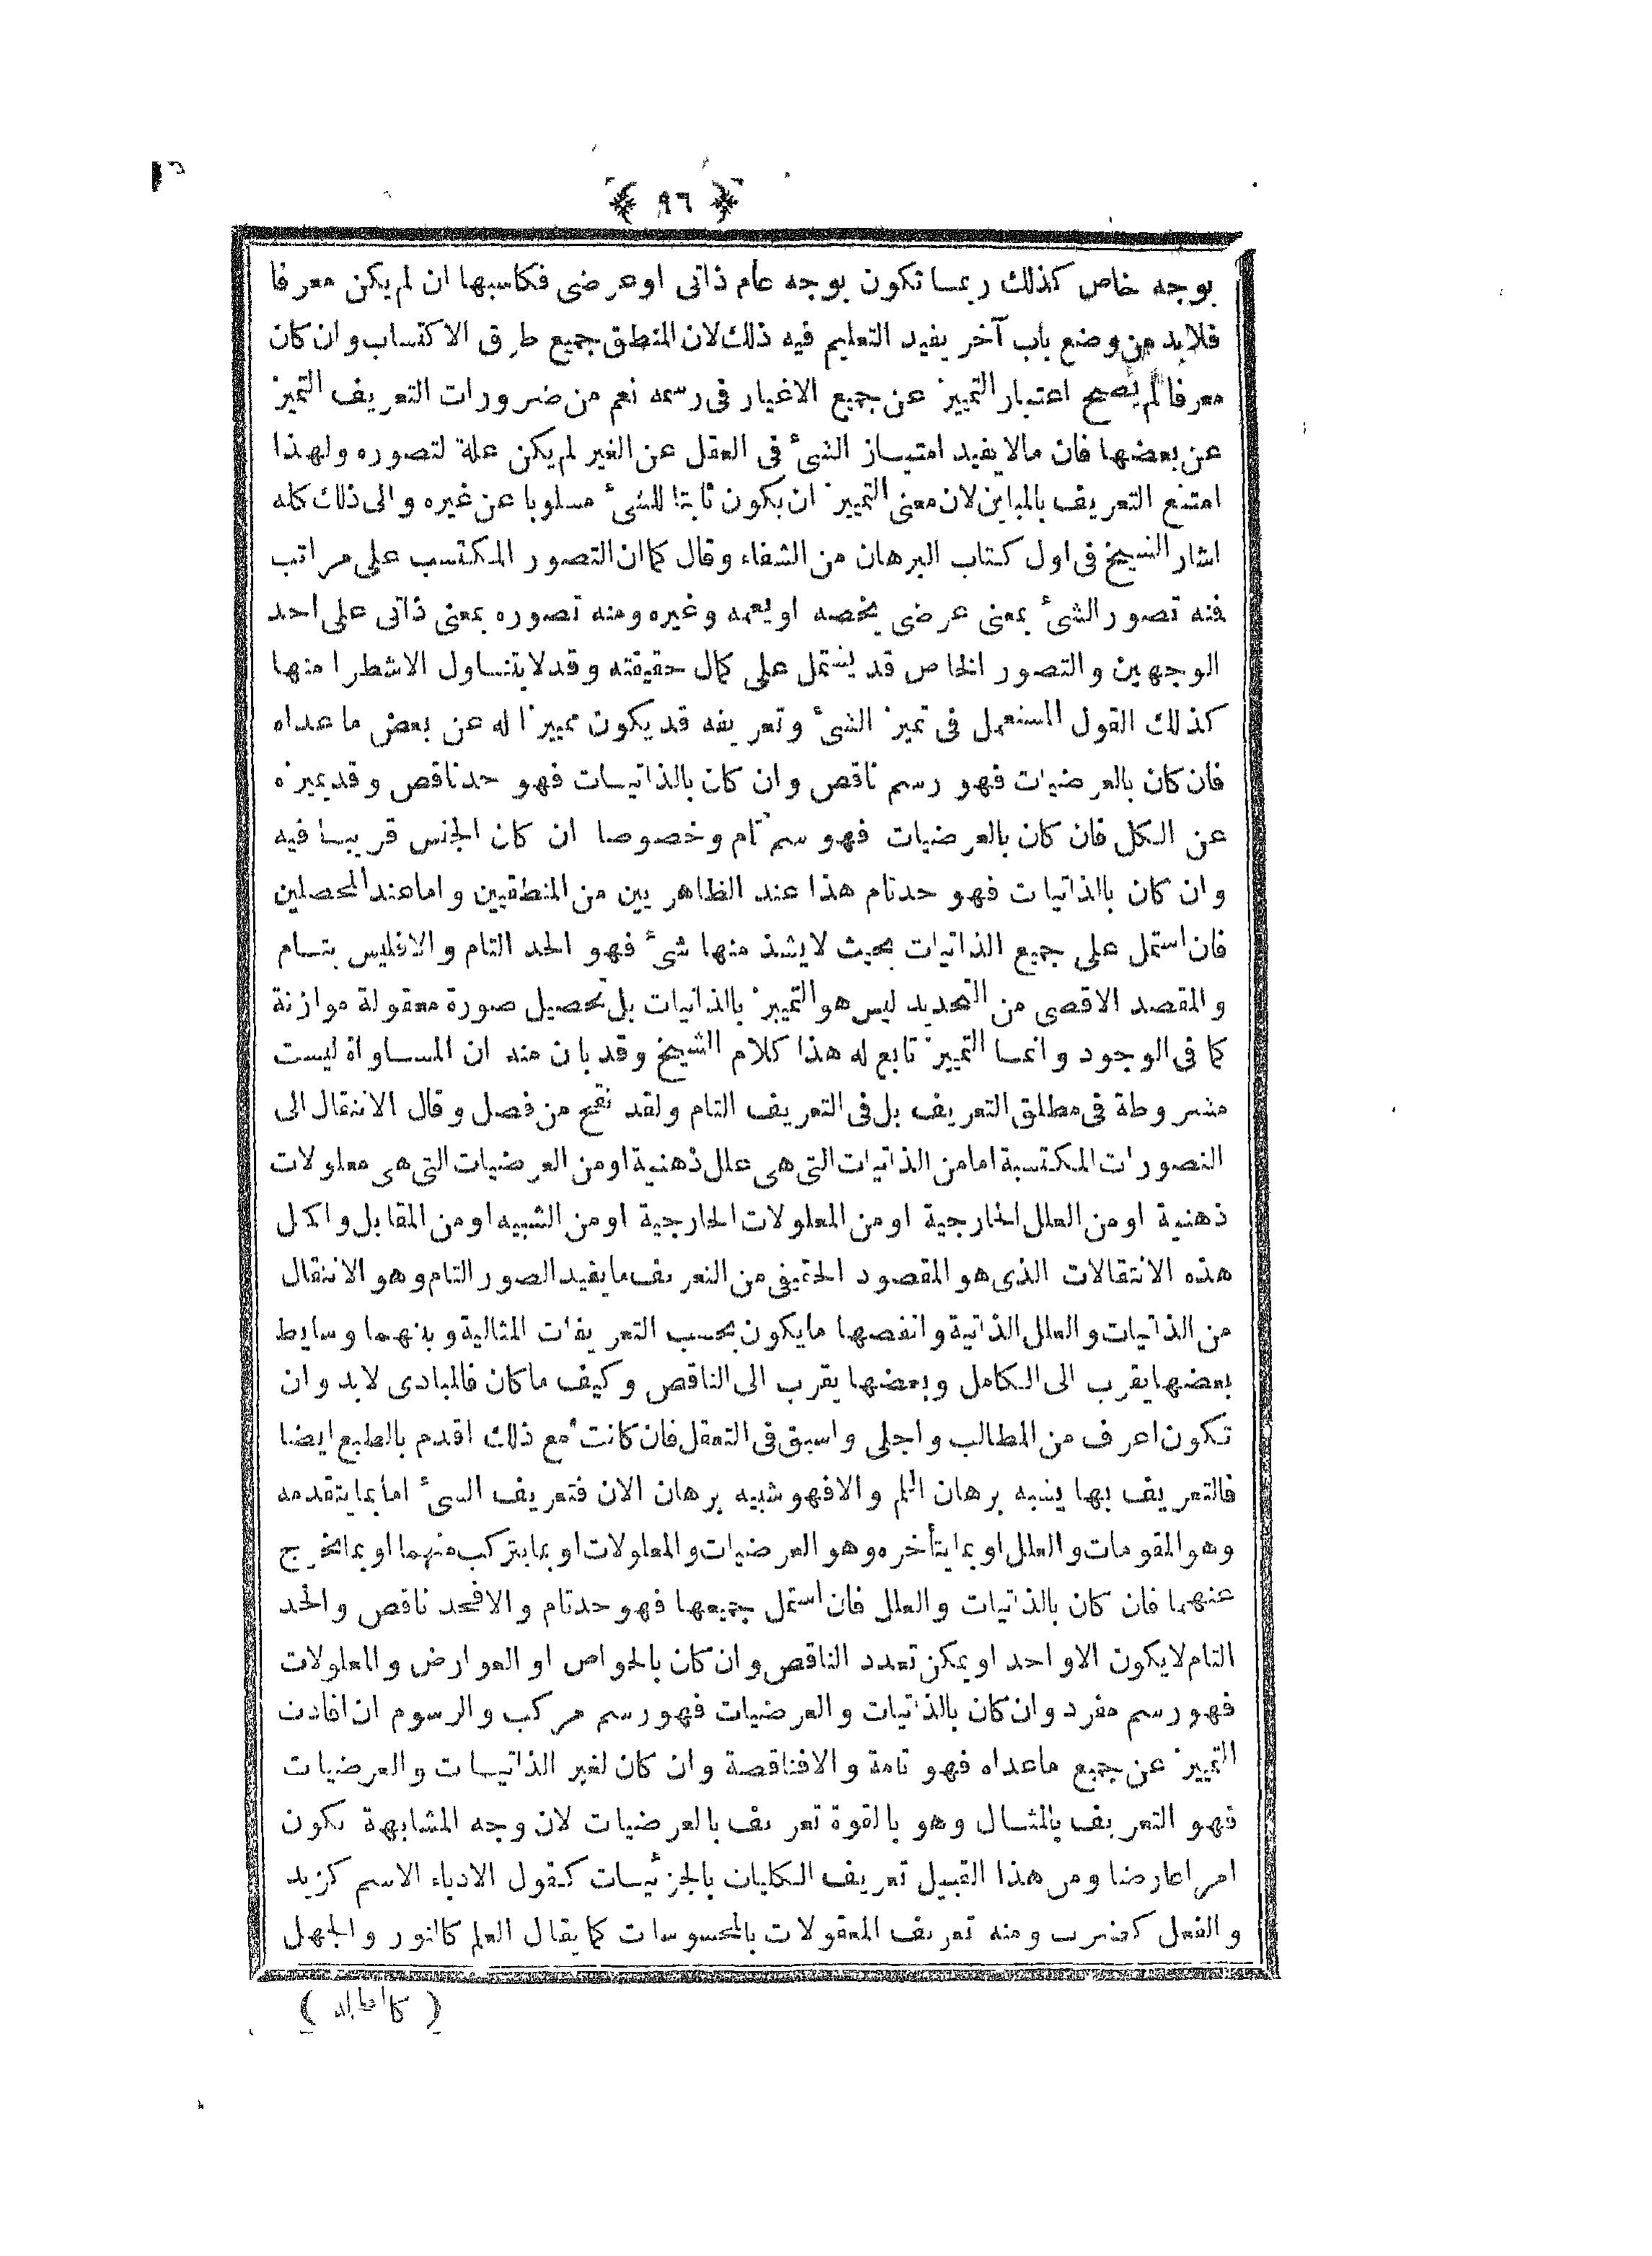 ﴿ ٩٦ ﴾
بوجه خاص كذلك ربما تكون بوجه عام ذاتى او عرضى فكاسبها ان لم يكن معرفا
فلابد من وضع باب آخر يفيد التعليم فيه ذلك لان المنطق جميع طرق الاكتساب وان كان
معرفا لم يصح اعتبار التمييز عن جميع الاغيار فى رسمه نعم من ضرورات التعريف التميز
عن بعضها فان مالا يفيد امتياز الشئ فى العقل عن الغير لم يكن علة لتصوره ولهذا
امتنع التعريف بالمباين لان معنى التمييز ان يكون ثابتا للشئ مسلوبا عن غيره والى ذلك كله
اشار الشيخ فى اول كتاب البرهان من الشفاء وقال كما ان التصور المكتسب على مراتب
فنه تصور الشئ بمعنى عرضى يخصه او يعمه وغيره ومنه تصوره بمعنى ذاتى على احد
الوجهين والتصور الخاص قد يشتمل على كمال حقيقته وقد لا يتناول الا شطرا منها
كذلك القول المستعمل فى تميز الشئ وتعريفه قد يكون تمييزا له عن بعض ما عداه
فان كان بالعرضيات فهو رسم ناقص وان كان بالذاتيات فهو حد ناقص وقد يميزه
عن الكل فان كان بالعرضيات فهو سم تام وخصوصا ان كان الجنس قريبا فيه
وان كان بالذاتيات فهو حد تام هذا عند الظاهريين من المنطقيين واما عند المحصلين
فان استمل على جميع الذاتيات بحيث لا يشذ منها شئ فهو الحد التام والا فليس بتام
والمقصد الاقصى من التحديد ليس هو التمييز بالذاتيات بل تحصيل صورة معقولة موازنة
كما فى الوجود وانما التمييز تابع له هذا كلام الشيخ وقد بان منه ان المساواة ليست
مشروطة فى مطلق التعريف بل فى التعريف التام ولقد نقح من فصل وقال الانتقال الى
التصورات المكتسبة اما من الذاتيات التى هى علل ذهنية او من العرضيات التى هى معلولات
ذهنية او من العلل الخارجية او من المعلولات الخارجية او من الشبيه او من المقابل واكمل
هذه الانتقالات الذى هو المقصود الحقيقى من التعريف ما يفيد الصور التام وهو الانتقال
من الذاتيات والعلل الذاتية وانقصها ما يكون بحسب التعريفات المثالية وبينهما وسايط
بعضها يقرب الى الكامل وبعضها يقرب الى الناقص وكيف ما كان فالمبادى لابد وان
تكون اعرف من المطالب واجلى واسبق فى التعقل فان كانت مع ذلك اقدم بالطبع ايضا
فالتعريف بها يشبه برهان اللم والا فهو شبيه برهان الان فتعريف الشئ اما بما يتقدمه
وهو المقومات والعلل او بما يتأخره وهو العرضيات والمعلولات او بما يتركب منهما او بما يخرج
عنهما فان كان بالذاتيات والعلل فان استمل جميعها فهو حد تام والا فحد ناقص والحد
التام لا يكون الا واحد او يمكن تعدد الناقص وان كان بالخواص او العوارض والمعلولات
فهو رسم مفرد وان كان بالذاتيات والعرضيات فهو رسم مركب والرسوم ان افادت
التمييز عن جميع ماعداه فهو تامة والا فناقصة وان كان لغير الذاتيات والعرضيات
فهو التعريف بالمثال وهو بالقوة تعريف بالعرضيات لان وجه المشابهة يكون
امرا عارضا ومن هذا القبيل تعريف الكليات بالجزئيات كقول الادباء الاسم كزيد
والفعل كضرب ومنه تعريف المعقولات بالمحسوسات كما يقال العلم كالنور والجهل
( كالظلمة )